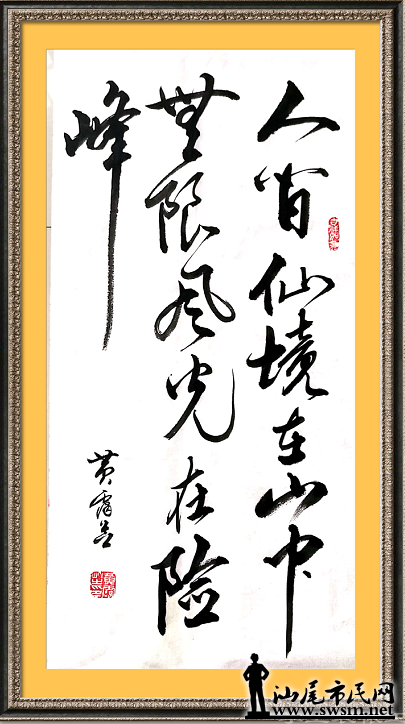 人间仙境在山中
無限风光在险
峰
黄
汕尾市民网
www.swsm.net